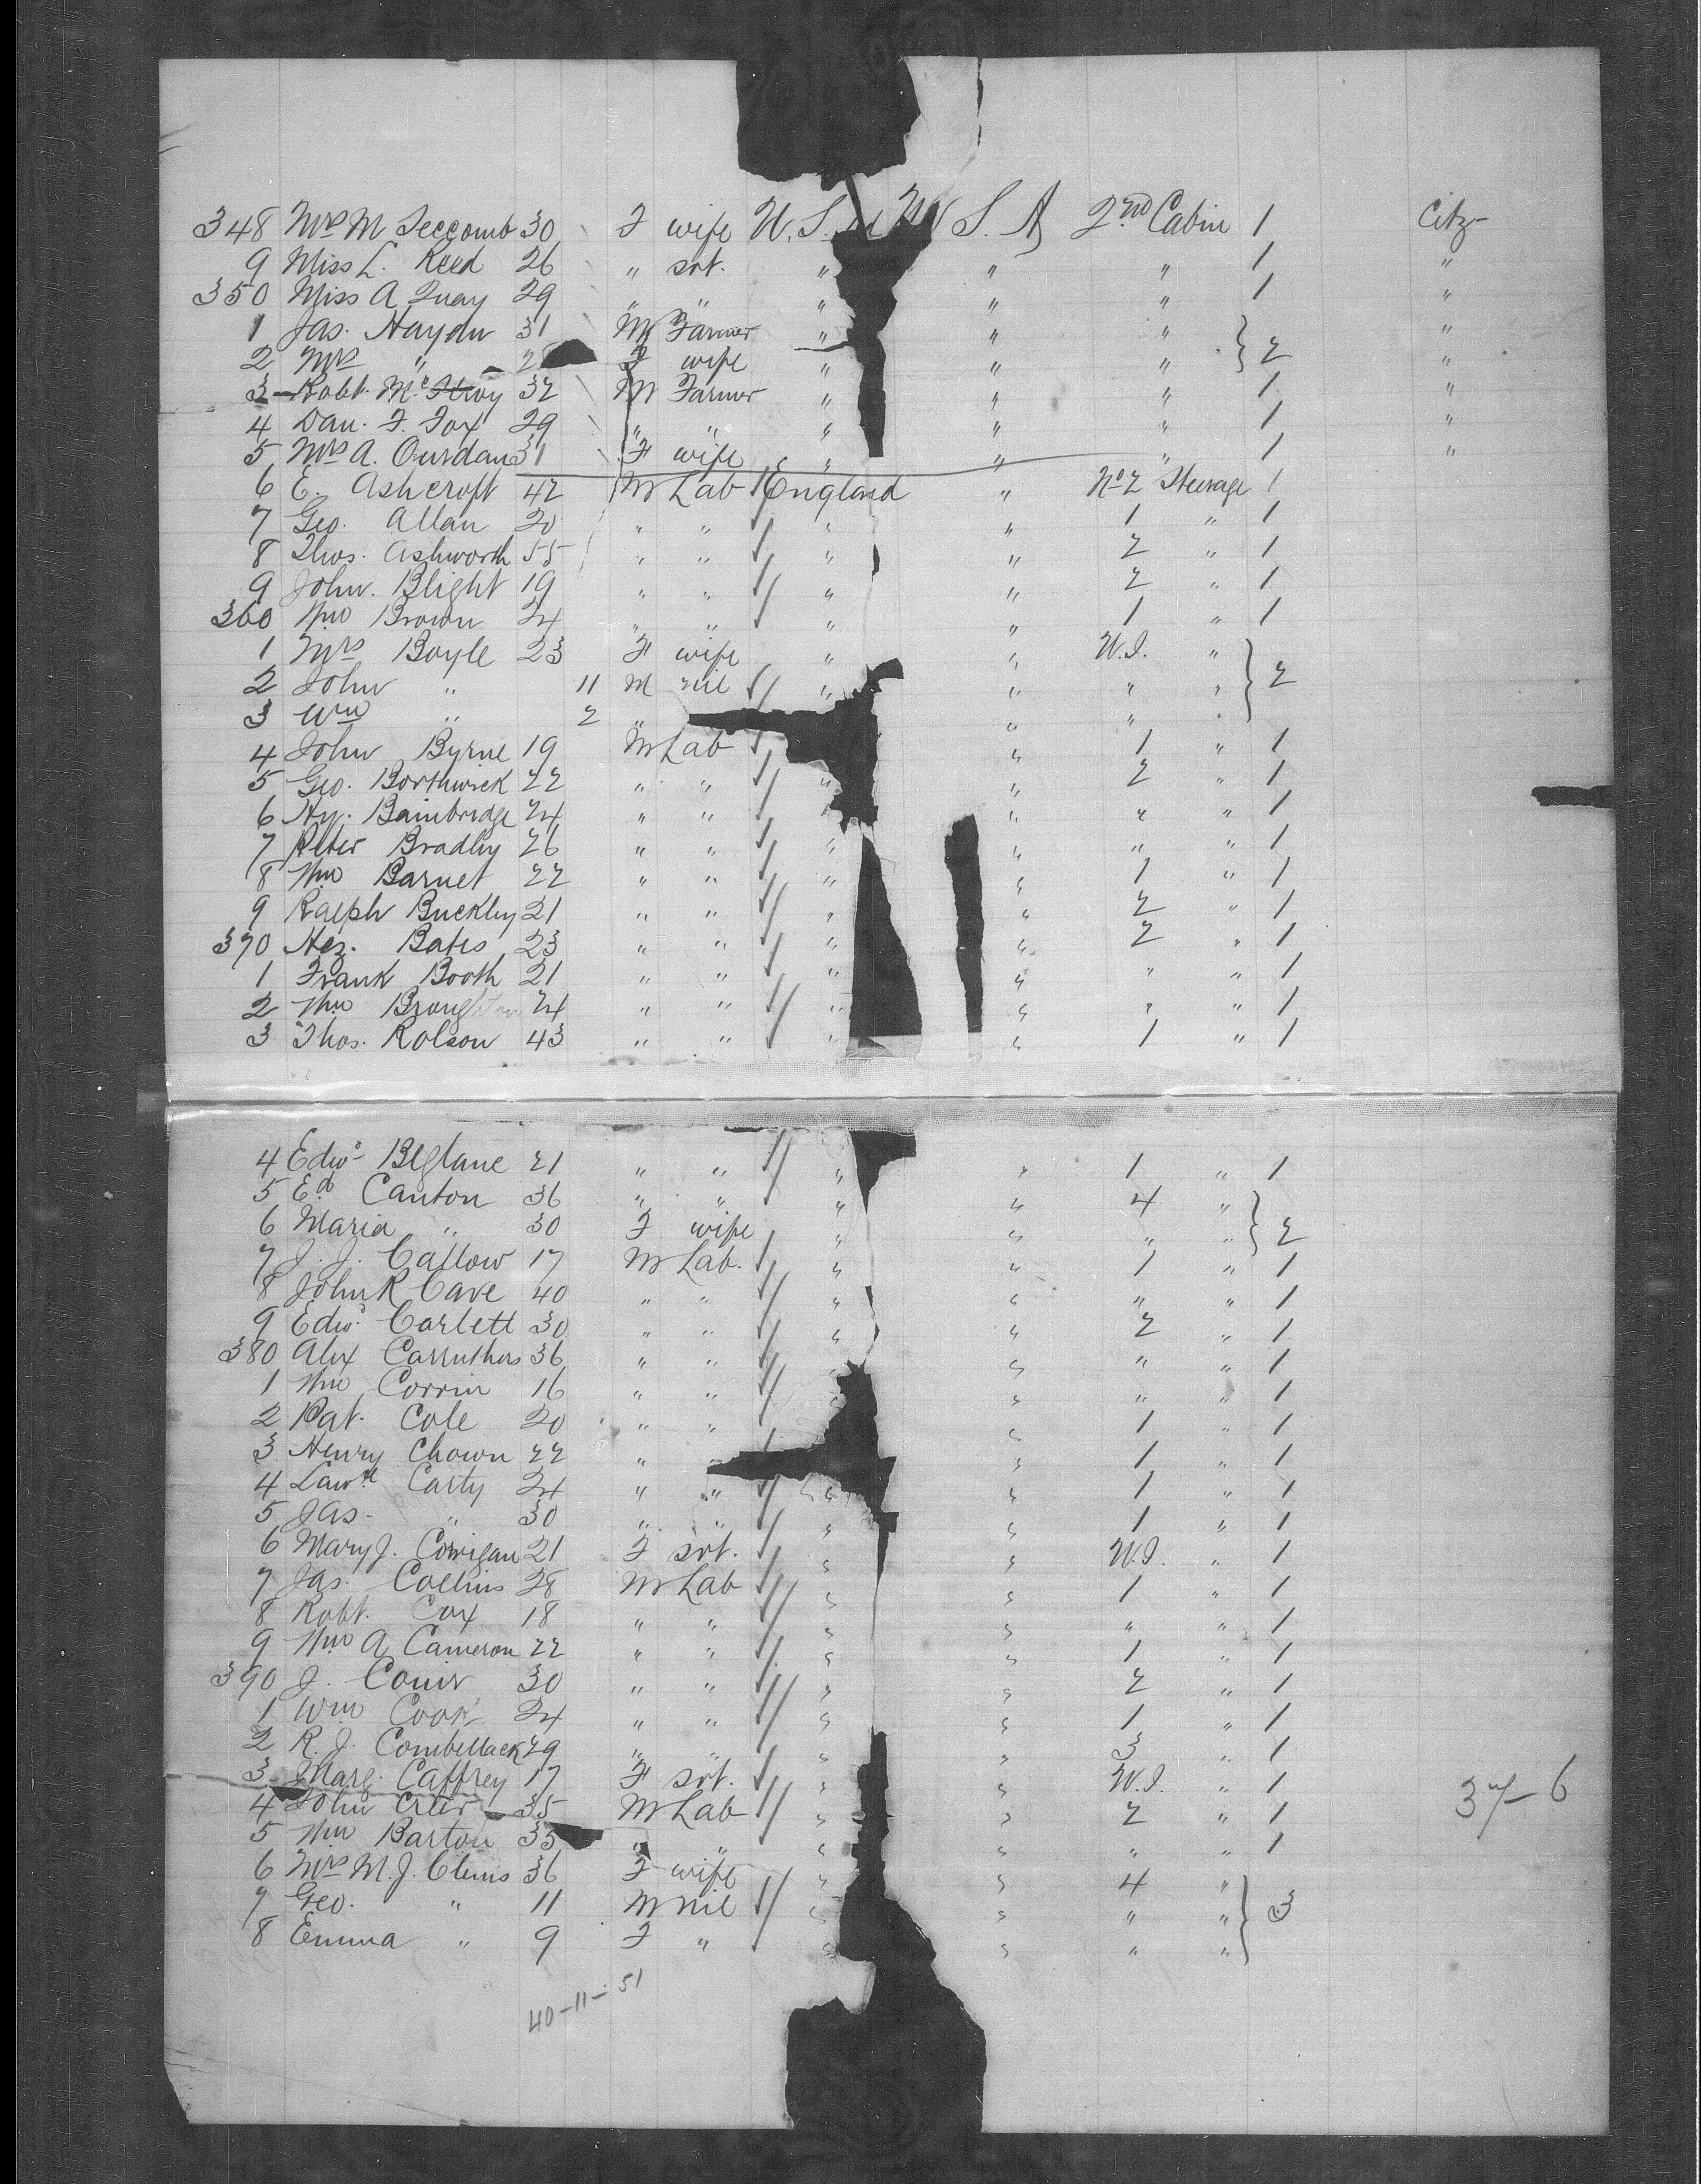 348 Mrs M Seccomb 30 F wife U. S. A U S. A 2nd Cabin 1 Citz-
9 Miss L. Reed 26 " svt. " " " 1 "
350 Miss A Quay 29 " " " " " 1 "
1 Jas. Haydn 31 M Farmer " " " "
2 Mrs " 2 F wife " " " } 2 "
3 Robt. Mc Ilroy 32 M Farmer " " " 1 "
4 Dan. F. Fox 29 " " " " " 1 "
5 Mrs A. Ourdan 31 F wife " " " 1 "
6 E. Ashcroft 42 M Lab England " No 2 Steerage 1
7 Geo. Allan 20 " " " " 1 " 1
8 Thos. Ashworth 55 " " " " 2 " 1
9 John. Blight 19 " " " " 2 " 1
360 Wm Brown 24 " " " " 1 " 1
1 Mrs Boyle 23 F wife " " W.I. "
2 John " 11 M nil " " " " } 2
3 Wm " 2 " " " "
4 John Byrne 19 M Lab " 1 " 1
5 Geo. Borthwick 22 " " " " 2 " 1
6 Hy. Bainbridge 24 " " " " " 1
7 Peter Bradley 26 " " " " " " 1
8 Wm Barnet 22 " " " " 1 " 1
9 Ralph Buckley 21 " " " " 2 " 1
370 Hez. Bates 23 " " " " 2 " 1
1 Frank Booth 21 " " " " " " 1
2 Wm Broughton 24 " " " " " " 1
3 Thos. Rolson 43 " " " " 1 " 1
4 Edwd Beglane 21 " " " " 1 " 1
5 Ed Canton 36 " " " " 4 "
6 Maria " 30 F wife " " " " } 2
7 J. J. Callow 17 M Lab. " " 1 " 1
8 John R Cave 40 " " " " " " 1
9 Edwd Corlett 30 " " " " 2 " 1
380 Alex Carruthers 36 " " " " " " 1
1 Wm Corrin 16 " " " " " " 1
2 Pat. Cole 20 " " " 1 " 1
3 Henry Chown 22 " " 1 " 1
4 Lawce Carty 24 " " " " 1 " 1
5 Jas. " 30 " " " " 1 " 1
6 Mary J. Corrigan 21 F svt. " " W.I. " 1
7 Jas. Collins 28 M Lab " " 1 " 1
8 Robt. Cox 18 " " " " " " 1
9 Wm A Cameron 22 " " " " 1 " 1
390 J. 30 " " " " 2 " 1
1 Wm Cook 24 " " " " 1 " 1
2 R. J. Combellack 29 " " " " 3 " 1
3 Marg. Caffrey 17 F svt. " " W.I. " 1
4 John 35 M Lab " " 2 " 1 37-6
5 Wm Barton 35 " " " " " " 1
6 Mrs M. J. Clems 36 F wife " " 4 "
7 Geo. " 11 M nil " " " " } 3
8 Emma " 9 F " " " " "
40-11-51